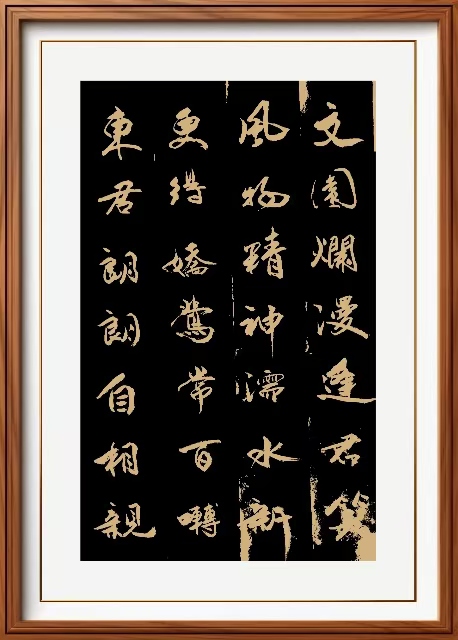 文園爛漫逢君笑
風物精神濡水新
更得嬌鶯常百囀
東君朗朗自相親